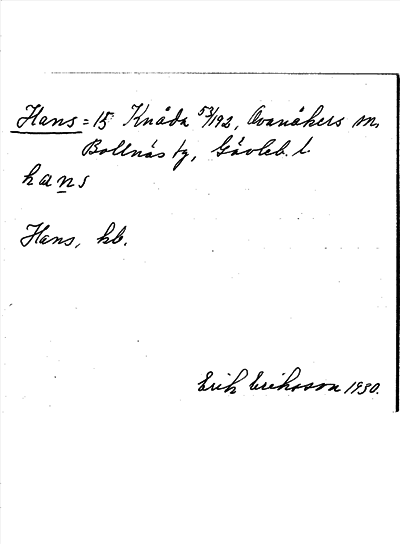 Hans = 15 Knåda 53/192, Ovanåkers sn,
Bollnäs tg, Gävleb. l.
hans
Hans, hb.
Erik Eriksson 1930.